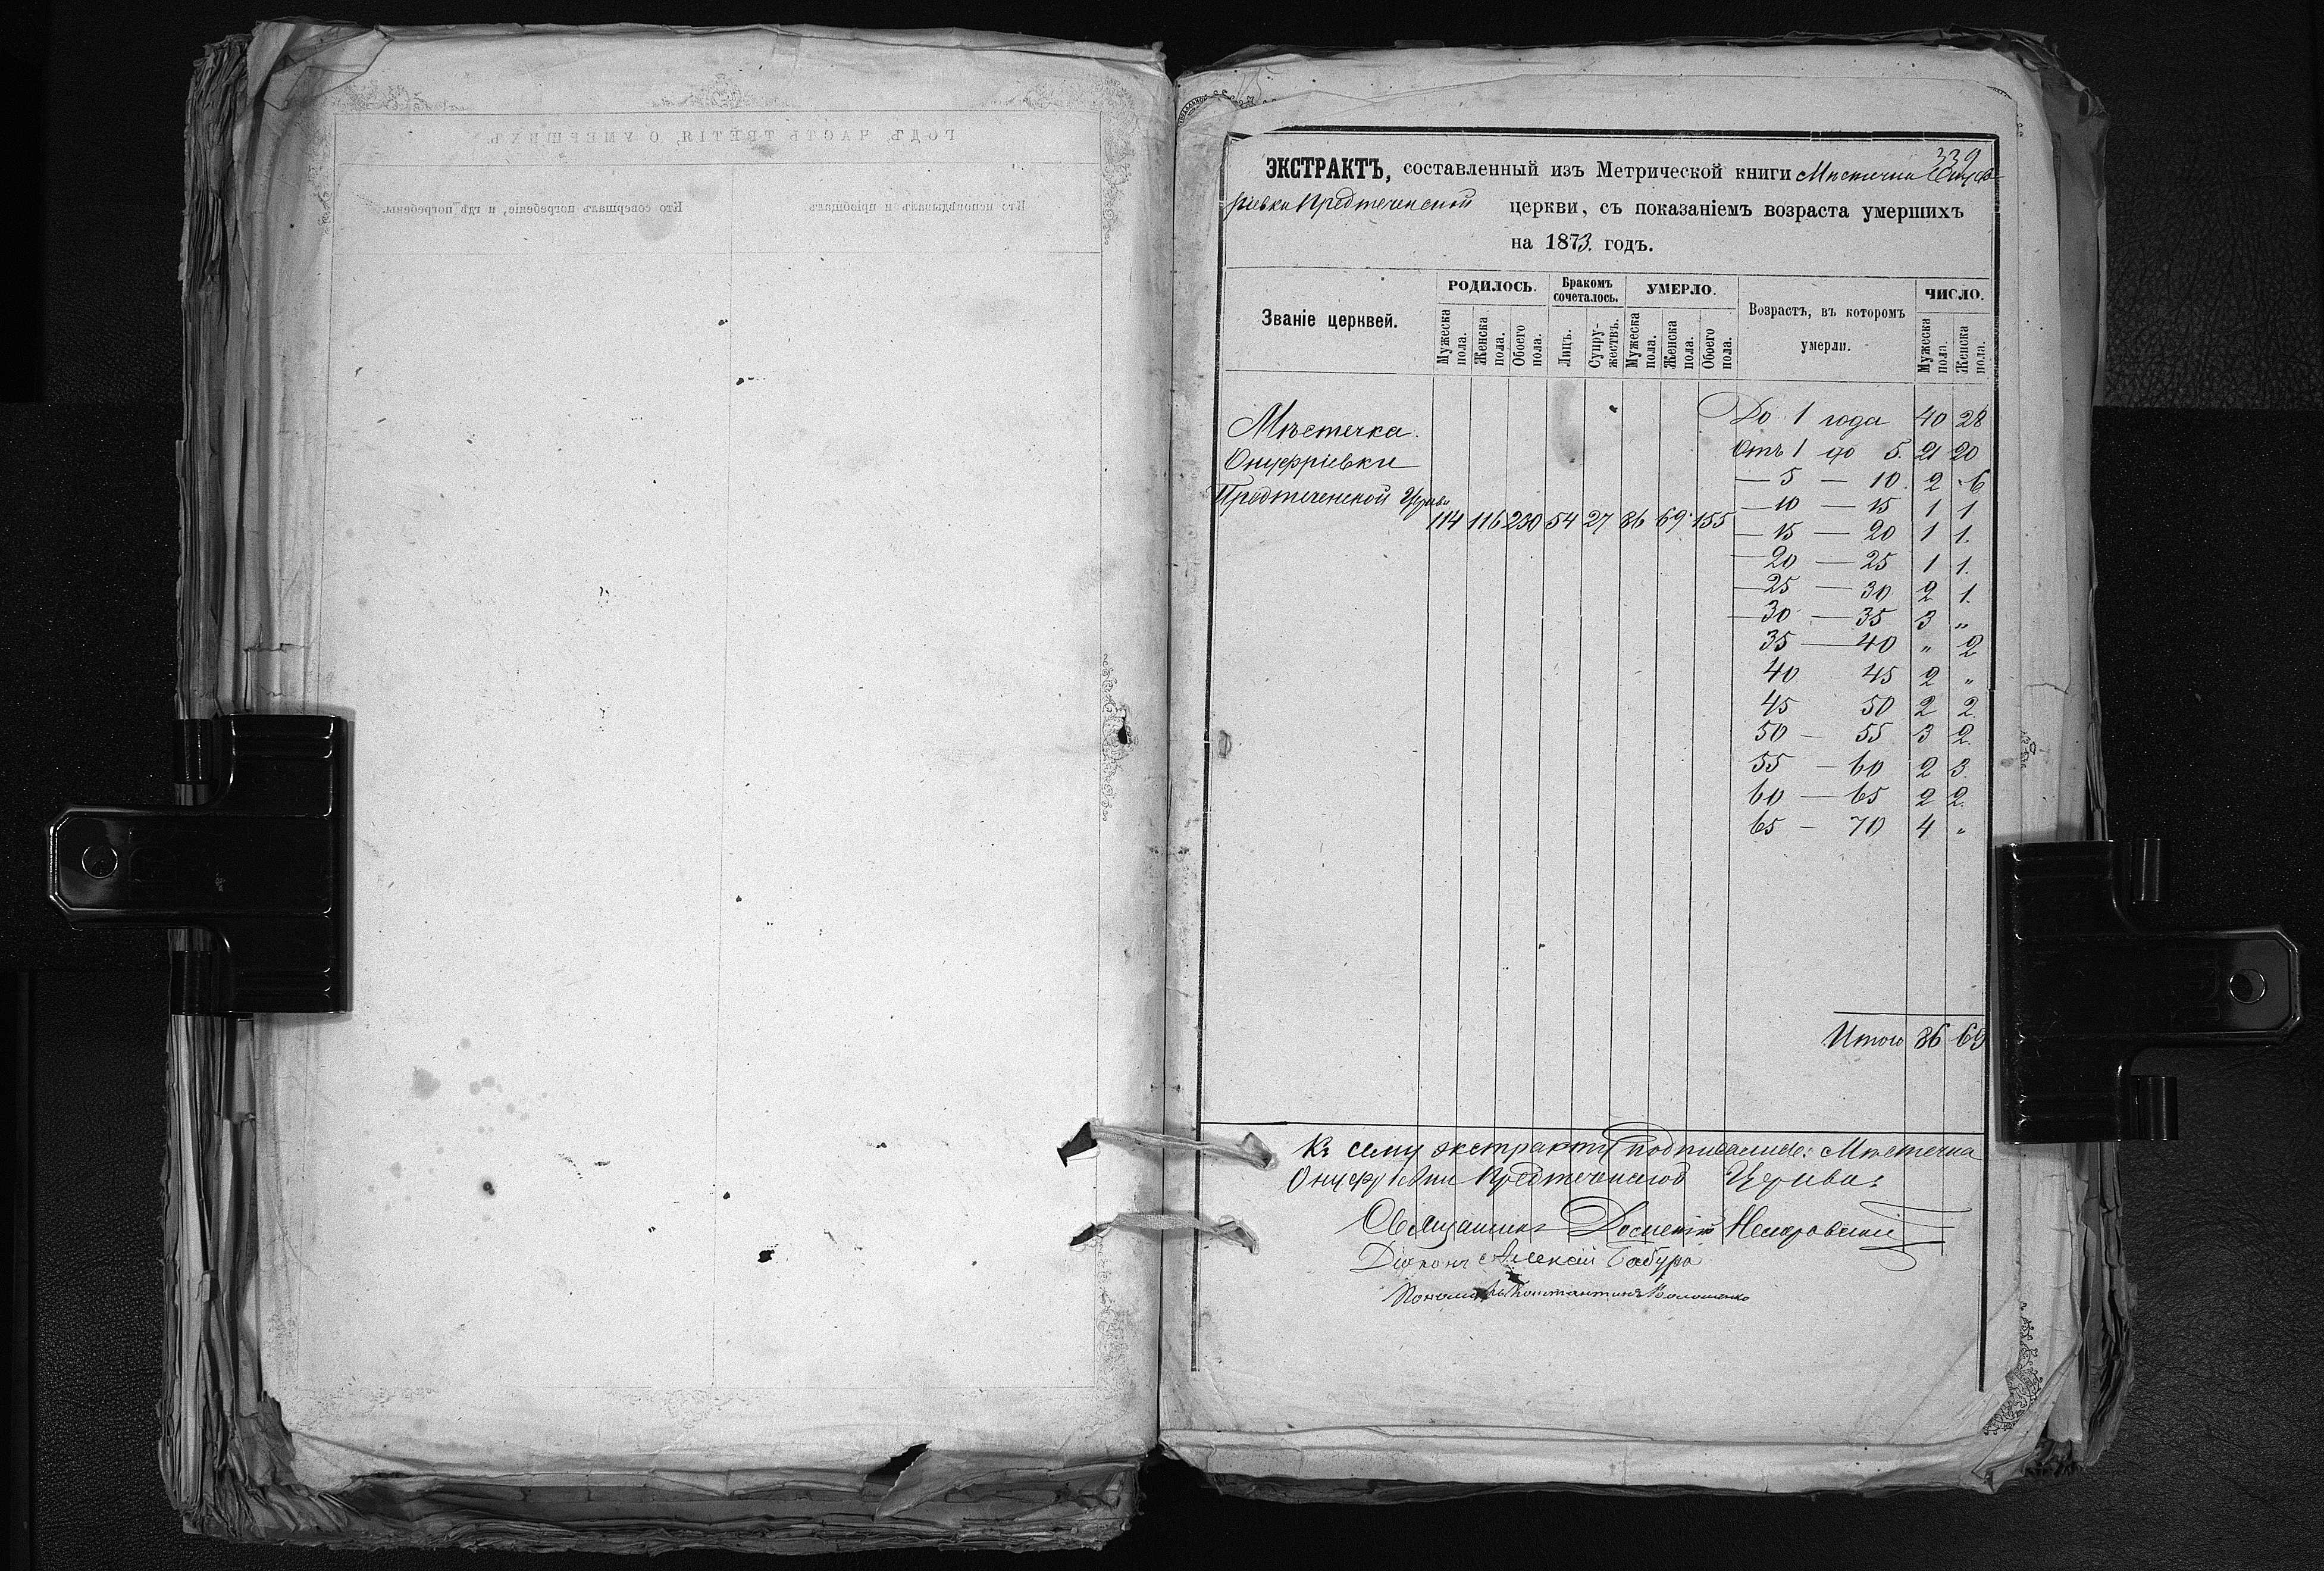 339
ЭКСТРАКТЪ, составленный изъ Метрической книги Мѣстечка Онуф-
ріевки Предтеченской церкви, съ показаніемъ возраста умершихъ
на 1873. годъ.
Званіе церквей.
РОДИЛОСЬ.
Мужеска пола.
Женска пола.
Обоего пола.
Бракомъ сочеталось.
Лицъ.
Супру-жествъ.
УМЕРЛО.
Мужеска пола.
Женска пола.
Обоего пола.
Возрастъ, въ которомъ
умерли.
ЧИСЛО.
Мужеска пола.
Женска пола.
Мѣстечка
Онуфріевки
Предтеченской Церкви
114 116 230 54 27 86 69 155
До 1 года 40 28
Отъ 1 до 5. 21 20
— 5 — 10. 2 6
— 10 — 15 1 1
— 15 — 20 1 1.
— 20 — 25 1 1.
— 25 — 30 2 1.
— 30 — 35 3 „
35 — 40 „ 2
40 45 2 „
45 50 2 2
50 — 55 3 2.
55 — 60 2 3.
60 — 65 2 2.
65 — 70 4 „
Итого 86 69
Къ сему экстракту подписались: Мѣстечка
Онуфріевки Предтеченской Церкви:
Священникъ
Діаконъ Алексій Бабура
Константинъ
ГОДЪ, ЧАСТЬ ТРЕТІЯ, О УМЕРШИХЪ.
Кто исповѣдывалъ и пріобщалъ.
Кто совершалъ погребеніе, и гдѣ погребены.